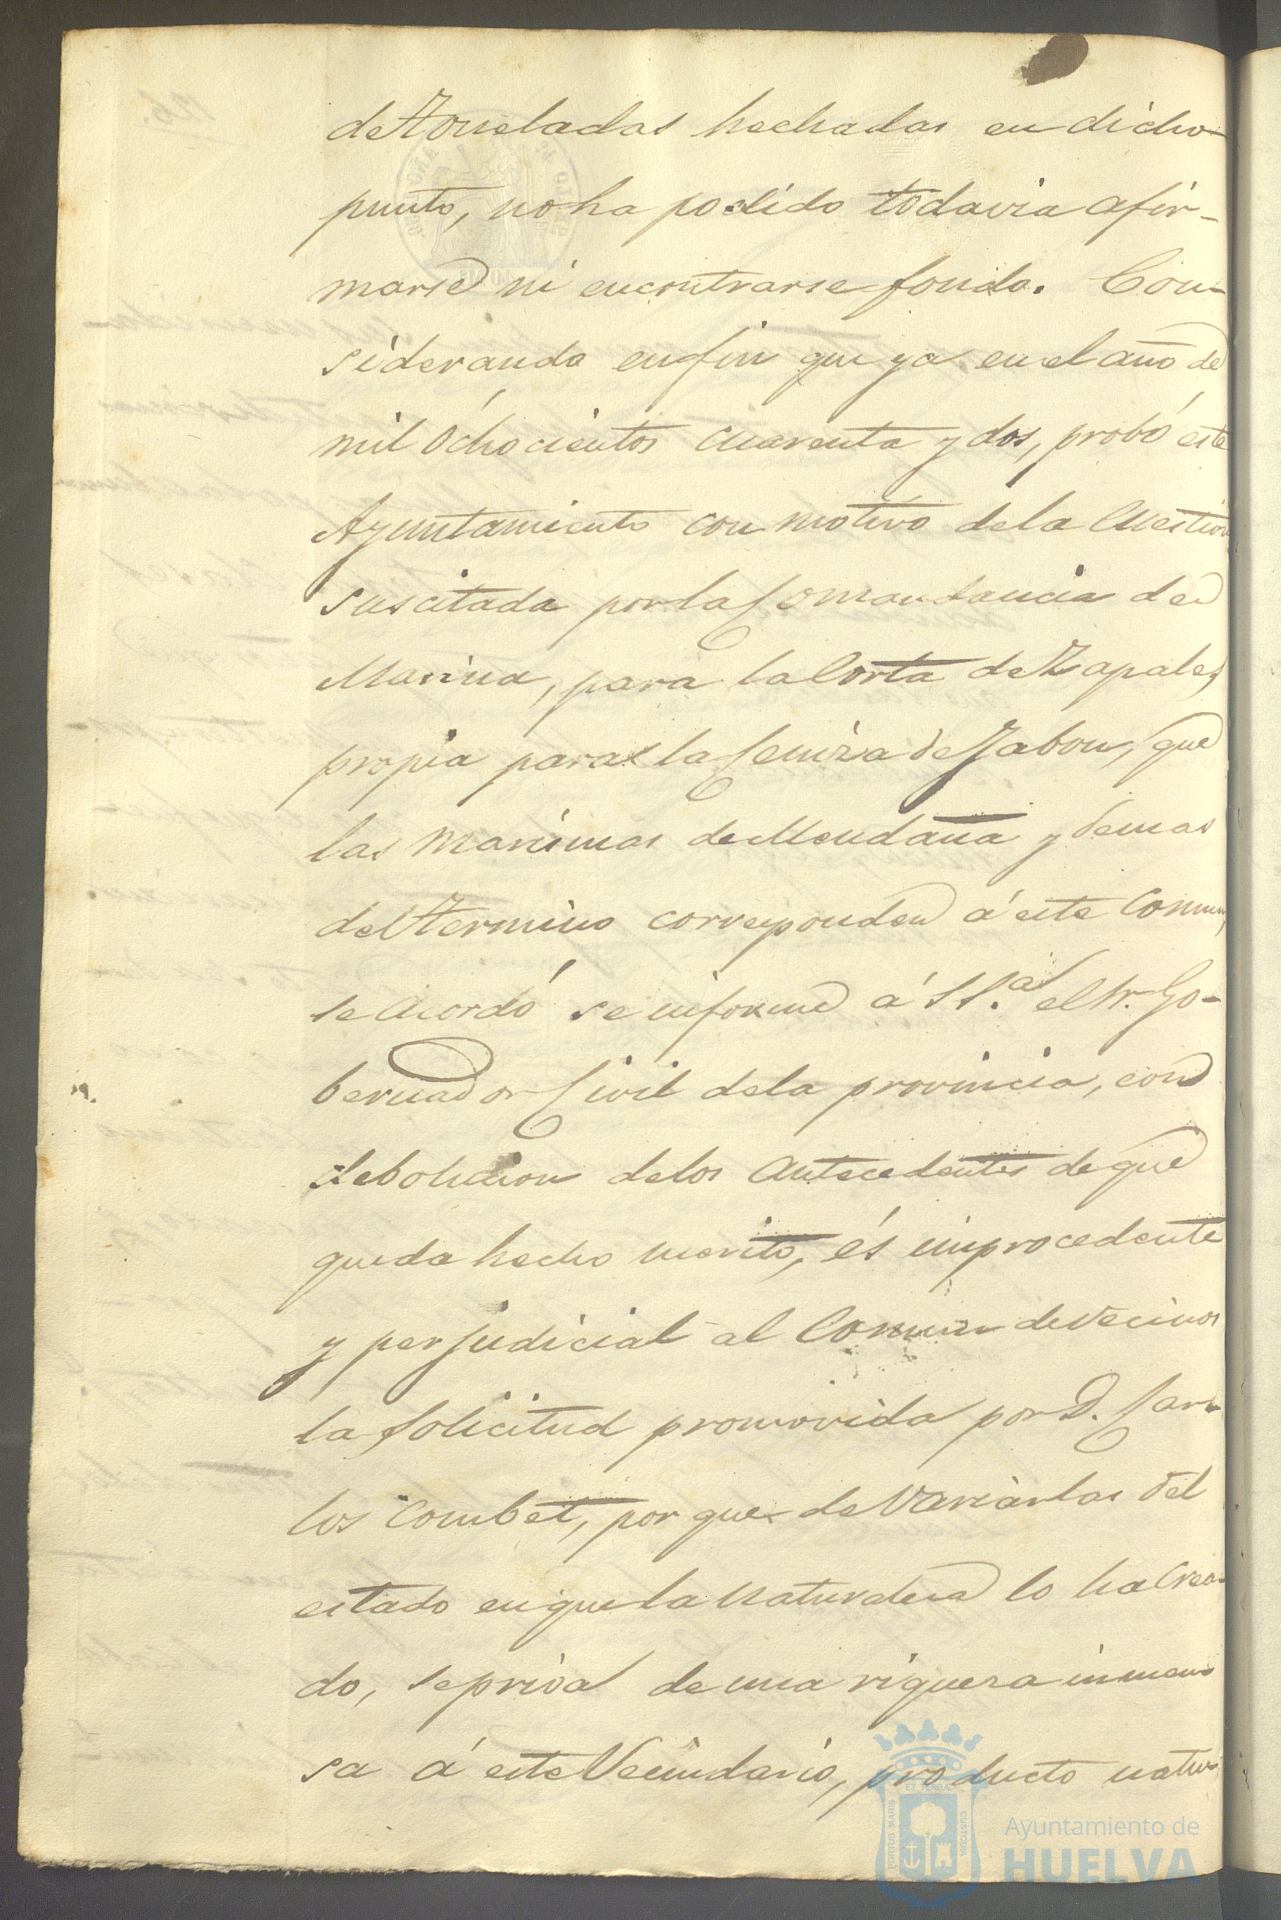 de Toneladas hechadas en dicho
punto, no ha podido todavia afir-
marse ni encontrarse fondo. Con-
siderando en fin que ya en el año de
mil óchocientos cuarenta y dos, probó este
Ayuntamiento con motivo de la Cuestion
suscitada por la Comandancia de
Marina, para la Corta de Zapales,
propia para la Ceniza de Jabon, que
las Marismas de Mendaña y demas
del termino corresponden á este Comun,
se acordó se informe á S.S.ª el Sr. Go-
bernador Civil de la provincia, con
debolucion de los antecedentes de que
queda hecho merito, és improcedente
y perjudicial al Comun de vecinos
la solicitud promovida por D. Car-
los Combet, por que de variarlas del
estado en que la naturaleza lo ha crea-
do, se priva de una riqueza inmen
sa á este Vecindario, producto natu
PORTUS MARIS
ET TERRAE
CUSTODIA
Ayuntamiento de
HUELVA